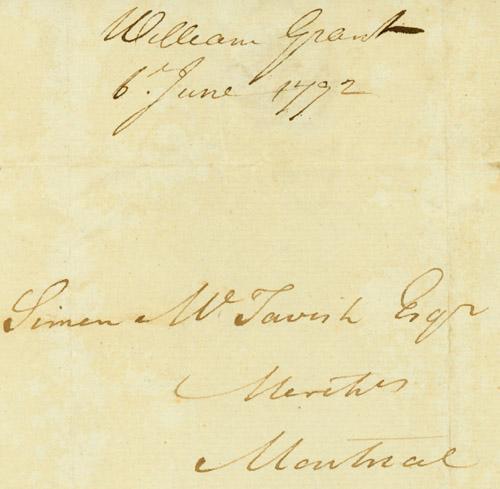 William Grant
6th June 1792
Simon McTavish Esqr
Montreal